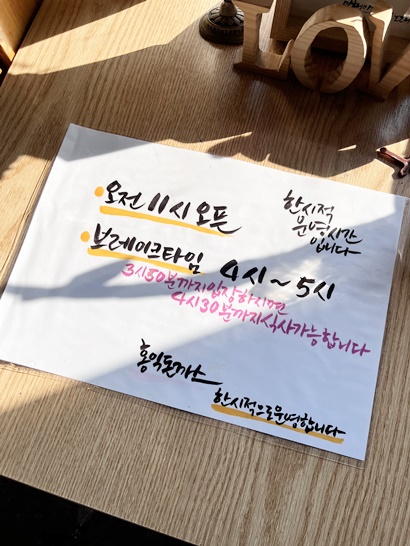 오전 11시 오픈
한시적
운영시간
입니다
브레이크타임 4시~5시
3시50분까지입장하시면
4시30분까지식사가능합니다
홍익돈까스
한시적으로운영합니다
LOV